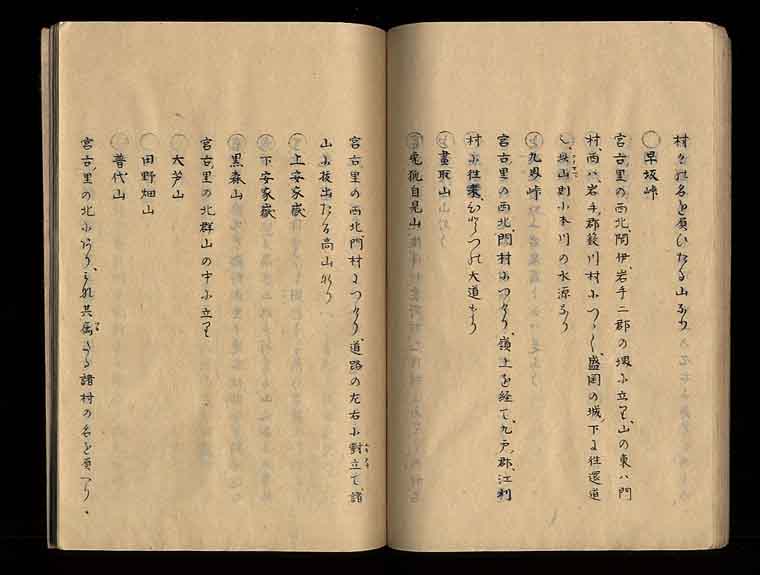 村々姓名を負ひたる山なり
○早坂峠
宮古里の西北閇伊岩手二郡の堺に立り、山の東ハ門
村、西ハ岩手郡薮川村につゝく、盛岡の城下に往還道
山則小本川の水源なり
○九界峠
宮古里の西北門村につゝけり、嶺上を経て、九戸郡江刈
村に往来の大道也
○畫取山
○兎 自是山
宮古里の西北門村につゝけり、道路の左右に對立て、諸
山に抜出たる高山也
○上安家嶽
○下安家嶽
○黒森山
宮古里の北群山の中に立り
○大芦山
○田野畑山
○普代山
宮古里の北にあり、これ其属る諸村の名を負へり、